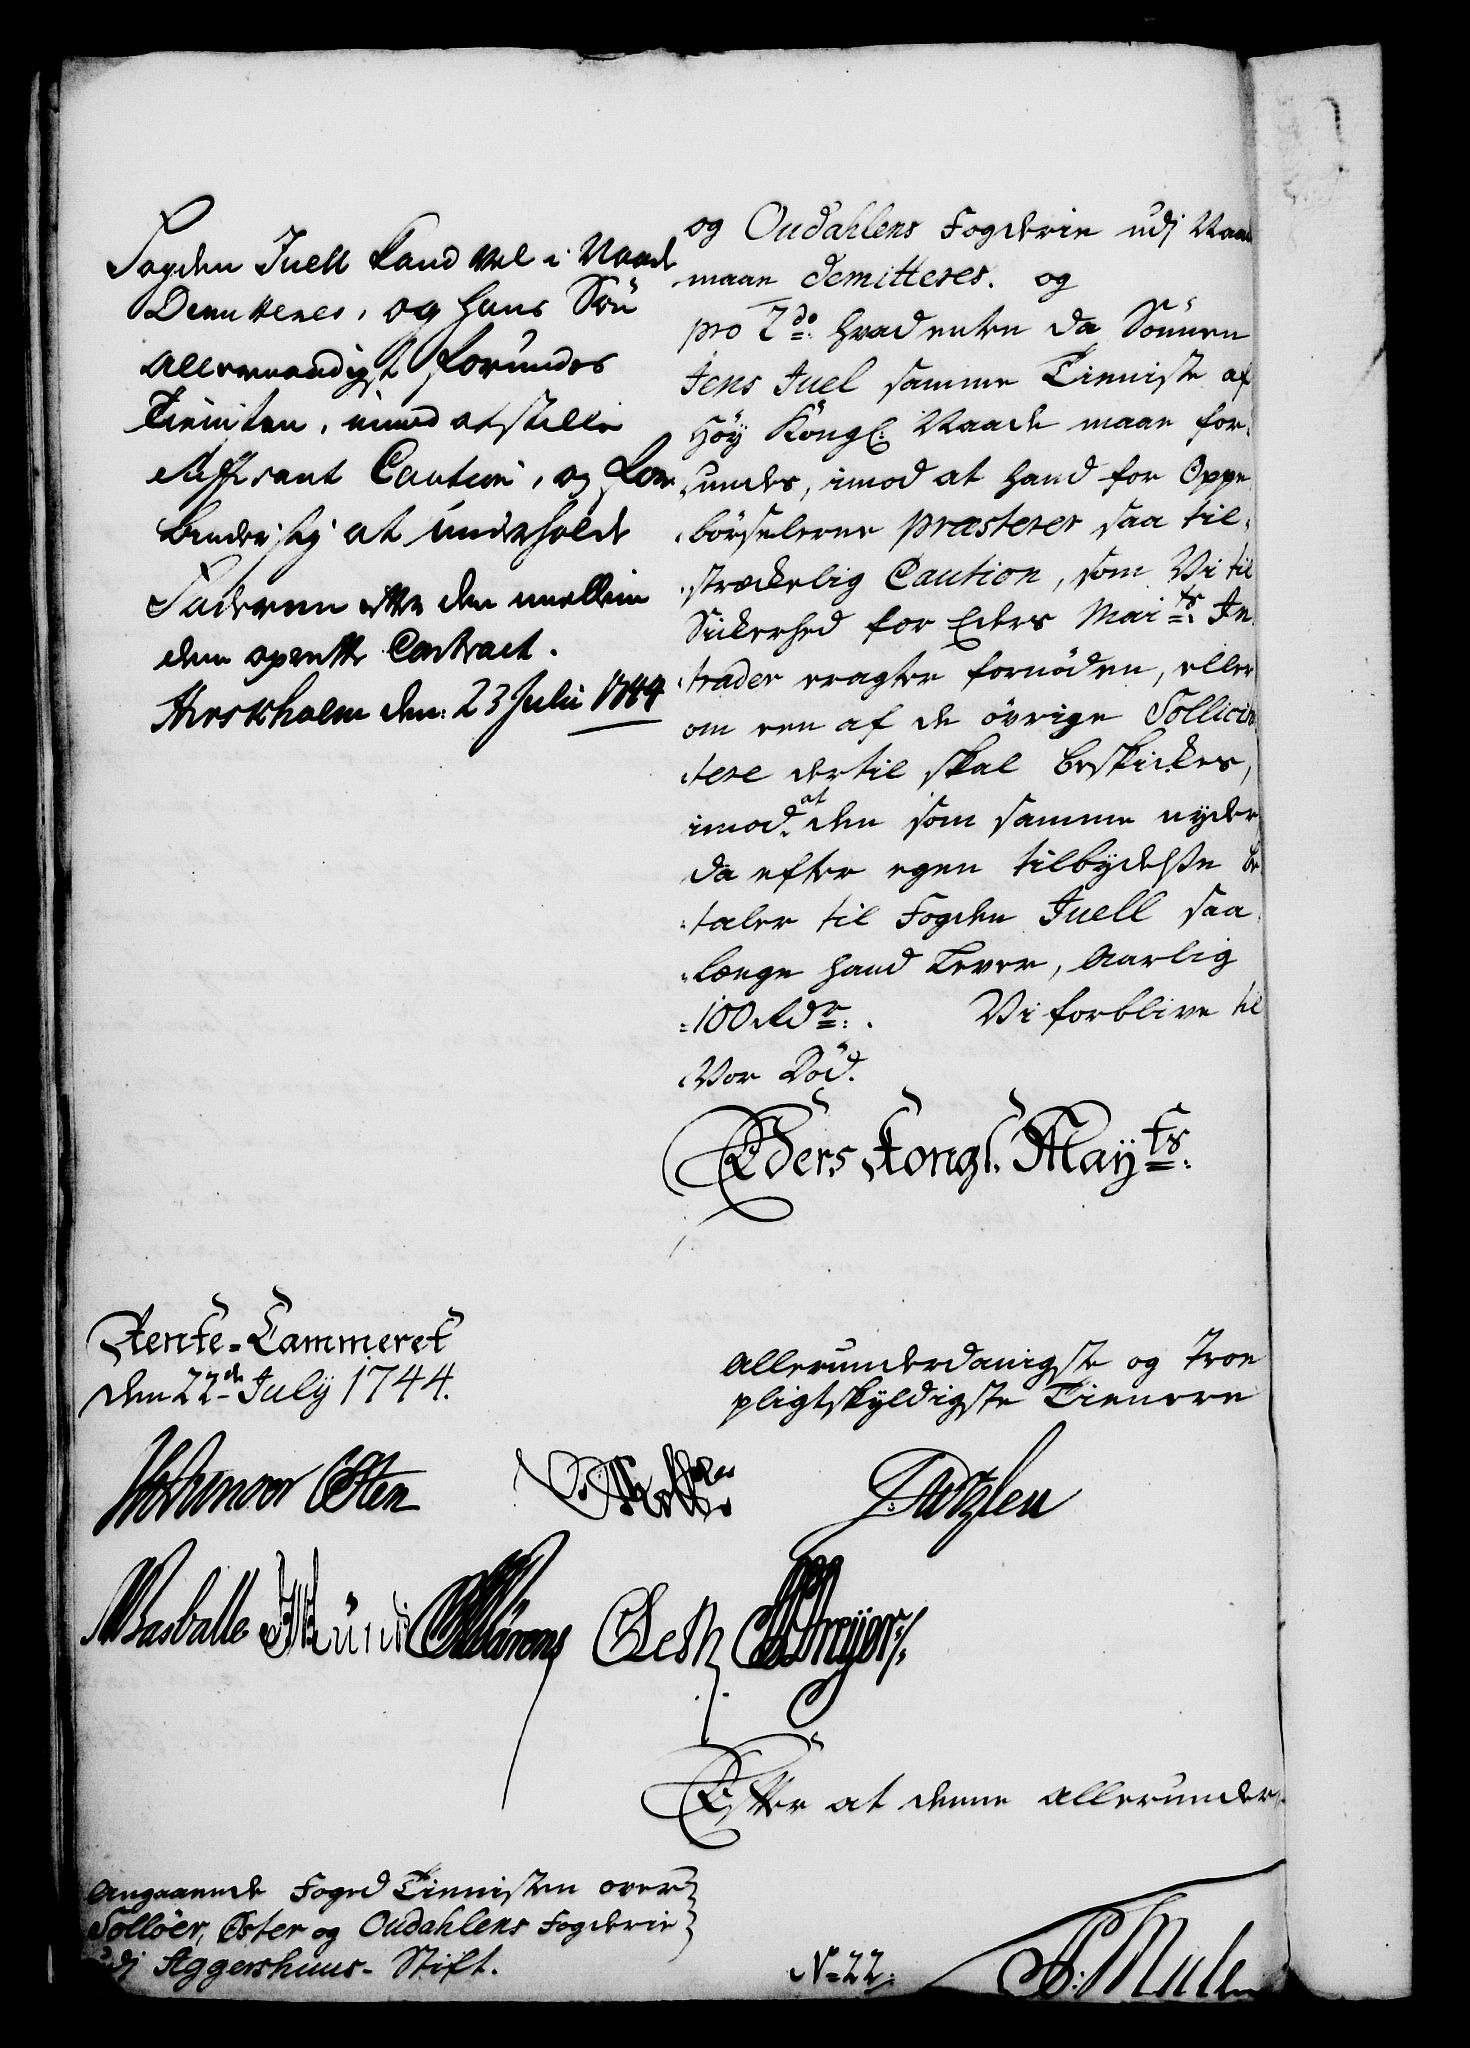 Fogden Juell kand vel i Naade
Demitteres, og hans Søn
allernaadigst forundes
Tienisten, imod at stille
suffisant Caution, og for-
binder sig at underholde
Faderen efter den imellem
dem oprette Contract.
Hirschholm den: 23 Julii 1744
og Oudahlens Fogderie udj Naade
maae demitteres. og
pro 2do: hvad enten da Sönnen
Jens Juel samme Tienniste af
Höy Kongl: Naade maae for-
undes, imod at hand for Oppe-
börselerne præsterer saa til-
strækelig Caution, som Vi til
Sickerhed for Eders Maits: In-
trader eragter fornöden, eller
om een af de övrige Sollicin-
tere dertil skal beskickes,
imod at den som samme nyder
da efter egen tilbydelse be-
taler til Fogden Juell saa
længe hand Lever, Aarlig
100 Rdr:. Vi forblive til
Vor Död.
Eders Kongl. Mayts:
Rente-Cammeret
den 22de July 1744.
Allerunderdanigste og troe
pligtskyldigste Tienere
Basballe
Efter at denne allerunder-
Angaaende Foged Tiennisten over
Sollöer, Öster og Oudahlens Fogderie
udj Aggershuus-Stift.
No 22.